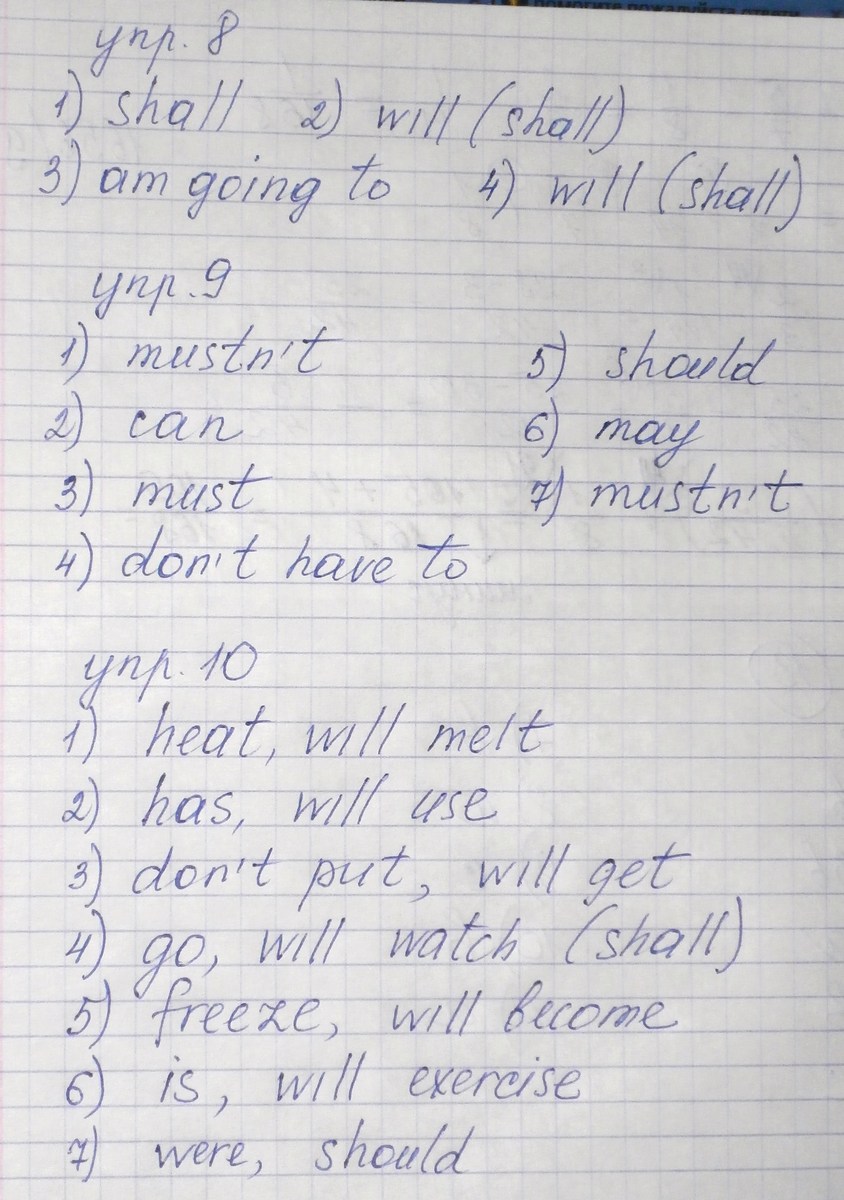 помогите пожалуйста ответи
упр. 8
1) shall 2) will (shall)
3) am going to 4) will (shall)
упр. 9
1) mustn't 5) should
2) can 6) may
3) must 7) mustn't
4) don't have to
упр. 10
1) heat, will melt
2) has, will use
3) don't put, will get
4) go, will watch (shall)
5) freeze, will become
6) is, will exercise
7) were, should